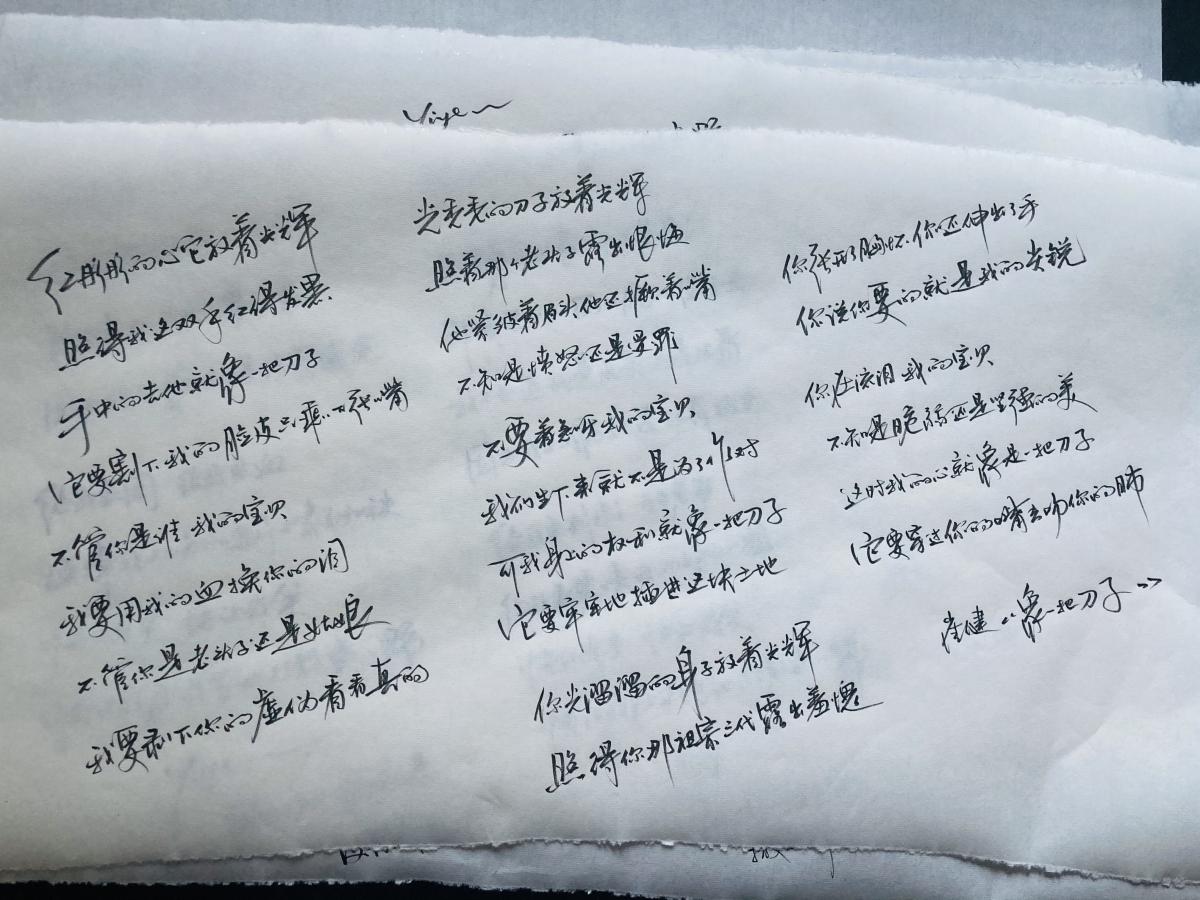 Yiye
红彤彤的心它放着光辉
照得我这双手红得发黑
手中的吉他就象一把刀子
它要割下我的脸皮只剩下张嘴
不管你是谁 我的宝贝
我要用我的血换你的泪
不管你是老头子还是姑娘
我要剥下你的虚伪看看真的
光秃秃的刀子放着光辉
照着那个老头子露出恨悔
他紧皱着眉头他还撅着嘴
不知是愤怒还是受罪
不要着急呀我的宝贝
我们生下来就不是为了作对
可我身上的权利就象一把刀子
它要牢牢地插进这块土地
你光溜溜的身子放着光辉
照得你那祖宗三代露出羞愧
你张开了胸怀 你还伸出了手
你说你要的就是我的尖锐
你在流泪 我的宝贝
不知是脆弱还是坚强的美
这时我的心就象是一把刀子
它要穿过你的嘴去吻你的肺
崔健《象一把刀子》